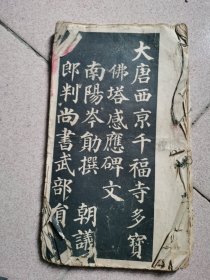 大唐西京千福寺多寶
佛塔感應碑文
南陽岑勛撰 朝議
郎判尚書武部員